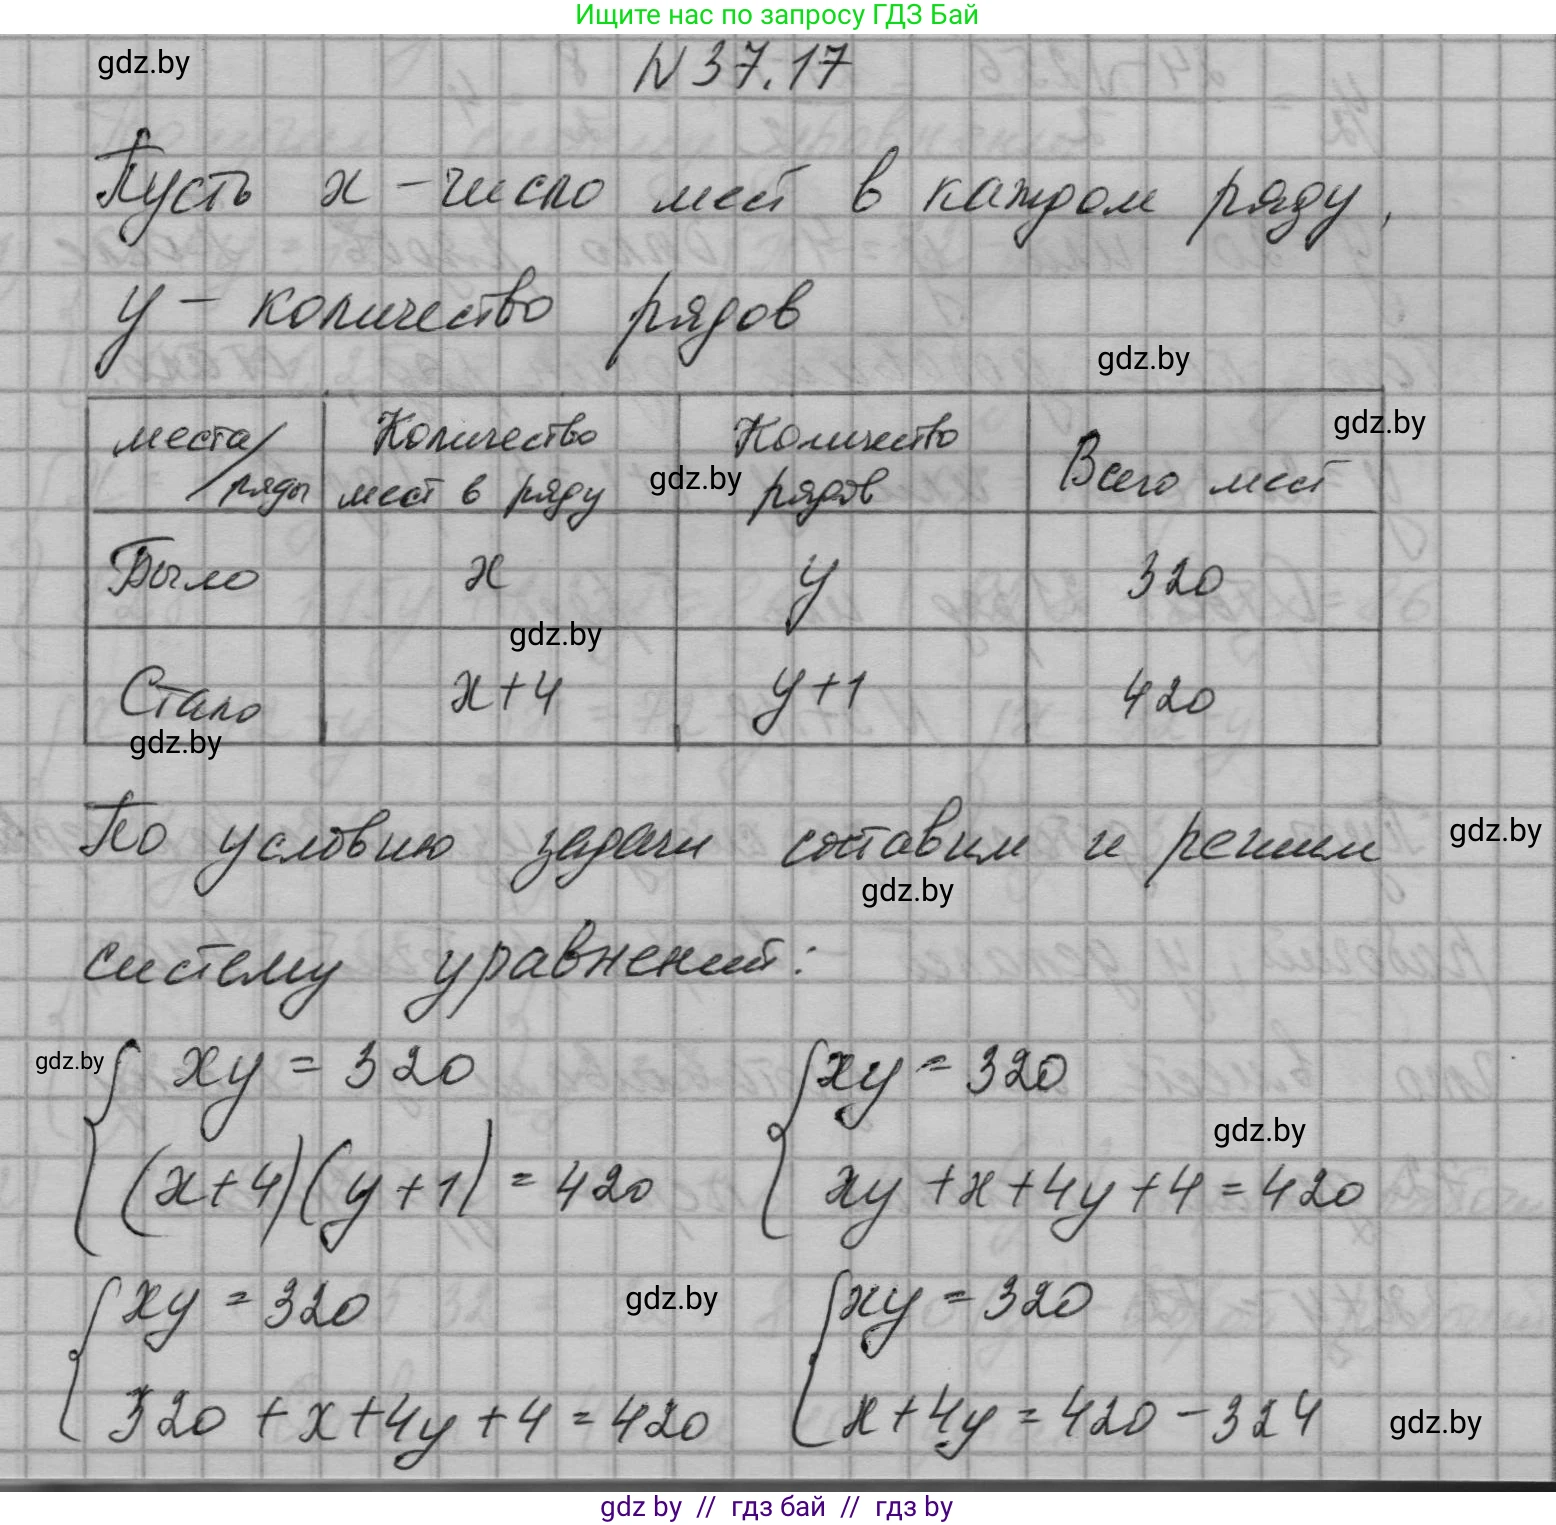 Ищите нас по запросу ГДЗ Бай
gdz.by
N 37.17
Пусть x – число мест в каждом ряду,
y – количество рядов
gdz.by
места/ряды Количество мест в ряду Количество рядов Всего мест
gdz.by
gdz.by
Было x y 320
gdz.by
Стало x+4 y+1 420
gdz.by
По условию задачи составим и решим
gdz.by
gdz.by
систему уравнений:
gdz.by
{ xy = 320 { xy = 320
gdz.by
(x+4)(y+1) = 420 xy + x + 4y + 4 = 420
{ xy = 320 { xy = 320
gdz.by
320 + x + 4y + 4 = 420 x + 4y = 420 – 324
gdz.by
gdz by // гдз бай // гдз by